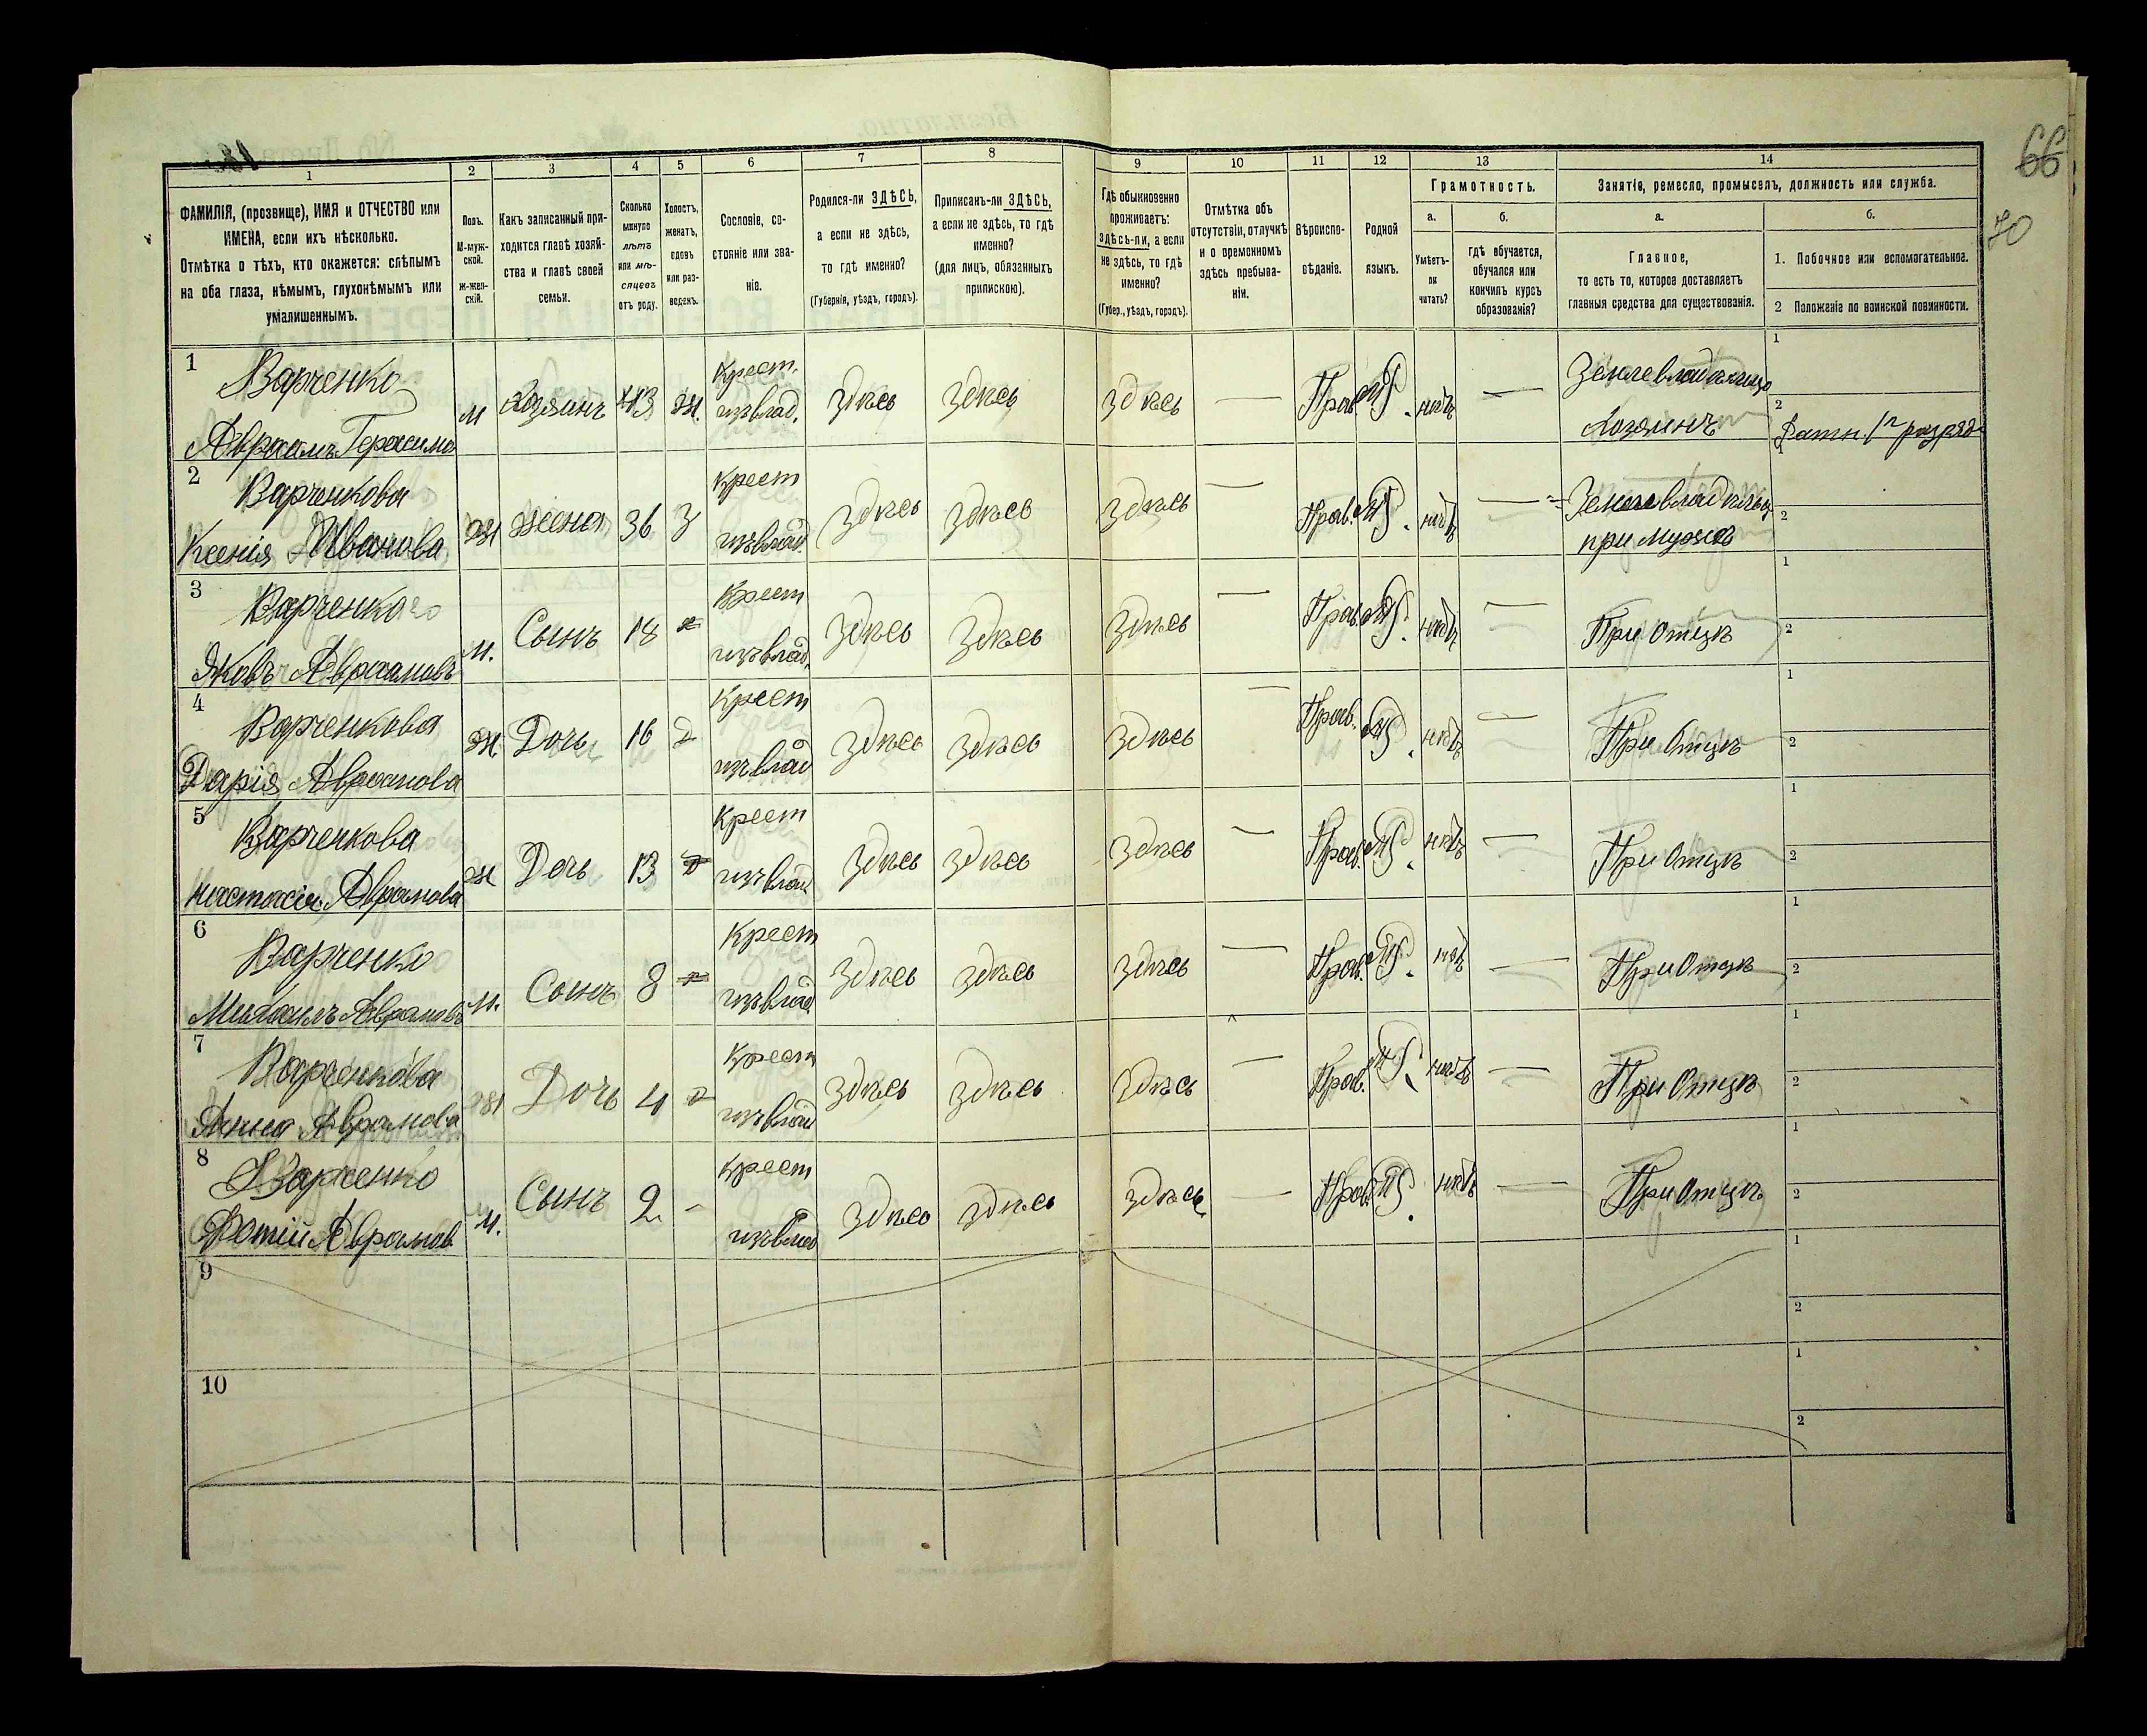 66
70
1
2
3
4
5
6
7
8
9
10
11
12
13
14
ФАМИЛІЯ, (прозвище), ИМЯ и ОТЧЕСТВО или
ИМЕНА, если ихъ нѣсколько.
Отмѣтка о тѣхъ, кто окажется: слѣпымъ
на оба глаза, нѣмымъ, глухонѣмымъ или
умалишеннымъ.
Полъ.
М-муж-
ской.
Ж-жен-
скій.
Какъ записанный при-
ходится главѣ хозяй-
ства и главѣ своей
семьи.
Сколько
минуло
лѣтъ
или мѣ-
сяцевъ
отъ роду.
Холостъ,
женатъ,
вдовъ
или раз-
веденъ.
Сословіе, со-
стояніе или зва-
ніе.
Родился-ли ЗДѢСЬ,
а если не здѣсь,
то гдѣ именно?
(Губернія, уѣздъ, городъ).
Приписанъ-ли ЗДѢСЬ,
а если не здѣсь, то гдѣ
именно?
(для лицъ, обязанныхъ
припискою).
Гдѣ обыкновенно
проживаетъ:
здѣсь-ли, а если
не здѣсь, то гдѣ
именно?
(Губер., уѣздъ, городъ).
Отмѣтка объ
отсутствіи, отлучкѣ
и о временномъ
здѣсь пребыва-
ніи.
Вѣроиспо-
вѣданіе.
Родной
языкъ.
Грамотность.
а.
Умѣетъ-
ли
читать?
б.
гдѣ обучается,
обучался или
кончилъ курсъ
образованія?
Занятіе, ремесло, промыселъ, должность или служба.
а.
Главное,
то есть то, которое доставляетъ
главныя средства для существованія.
б.
1. Побочное или вспомогательное.
2 Положеніе по воинской повинности.
1
Варченко
Аврамъ Герасимов
м хозяинъ 43 ж.
Крест.
изъ влад.
здѣсь здѣсь здѣсь — Прав. нѣтъ —
Землевладѣлец
хозяинъ
1
2
Ратн 1 разряд
2
Варченкова
Ксенія Иванова
ж жена 36 з
Крест
изъ влад.
здѣсь здѣсь здѣсь — Прав. нѣтъ —
Землевладѣлец
при мужѣ
1
2
3
Варченко
Яковъ Аврамовъ
м. Сынъ 18
Крест
изъ влад.
здѣсь здѣсь здѣсь — Прав. нѣтъ —
При Отцѣ
1
2
4
Варченкова
Дарія Аврамова
ж Дочь 16 д
Крест
изъ влад
здѣсь здѣсь здѣсь — Прав. нѣтъ —
При Отцѣ
1
2
5
Варченкова
Настасія Аврамова
ж Дочь 13
Крест
изъ влад
здѣсь здѣсь здѣсь — Прав. нѣтъ —
При Отцѣ
1
2
6
Варченко
Михаилъ Аврамовъ
м. Сынъ 8
Крест
изъ влад
здѣсь здѣсь здѣсь — Прав. нѣтъ —
При Отцѣ
1
2
7
Варченкова
Анна Аврамова
ж Дочь 4
Крест
изъ влад
здѣсь здѣсь здѣсь — Прав. нѣтъ —
При Отцѣ
1
2
8
Варченко
Фотій Аврамов
м. Сынъ 2 -
Крест
изъ влад
здѣсь здѣсь здѣсь — Прав. нѣтъ —
При Отцѣ
1
2
9
1
2
10
1
2